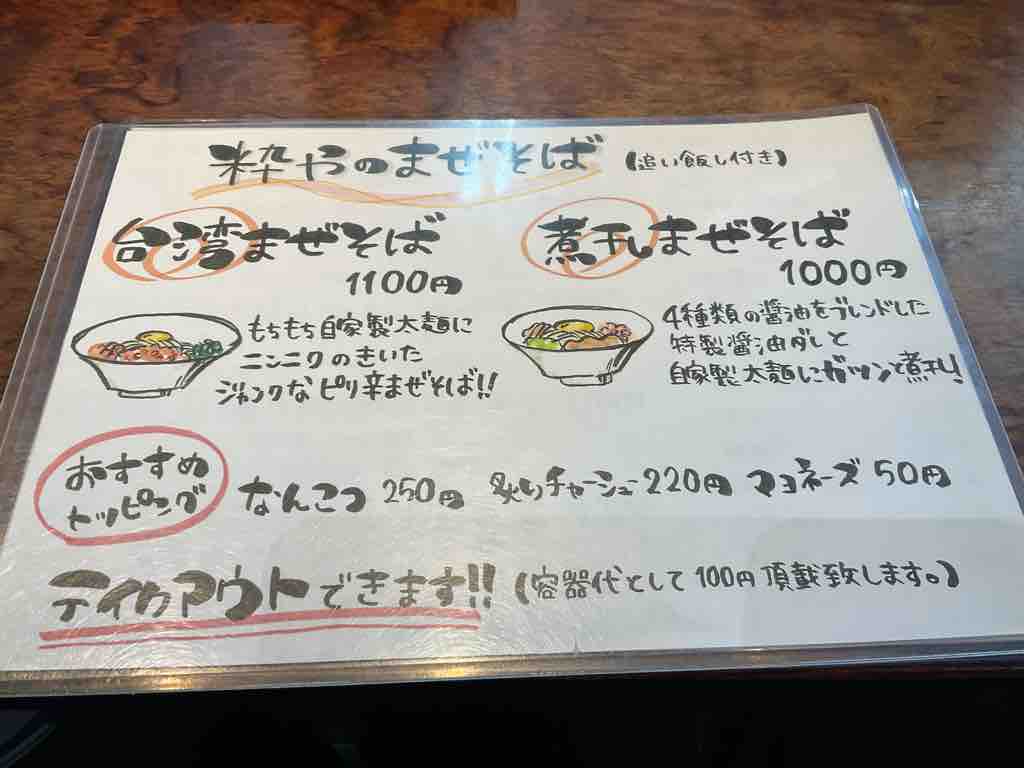 粋やのまぜそば（追い飯し付き）
台湾まぜそば
1100円
もちもち自家製太麺に
ニンニクのきいた
ジャンクなピリ辛まぜそば!!
煮干しまぜそば
1000円
4種類の醤油をブレンドした
特製醤油ダレと
自家製太麺にガツンと煮干し!
おすすめ
トッピング
なんこつ 250円 炙りチャーシュー 220円 マヨネーズ 50円
テイクアウトできます!!（容器代として100円頂戴致します。）